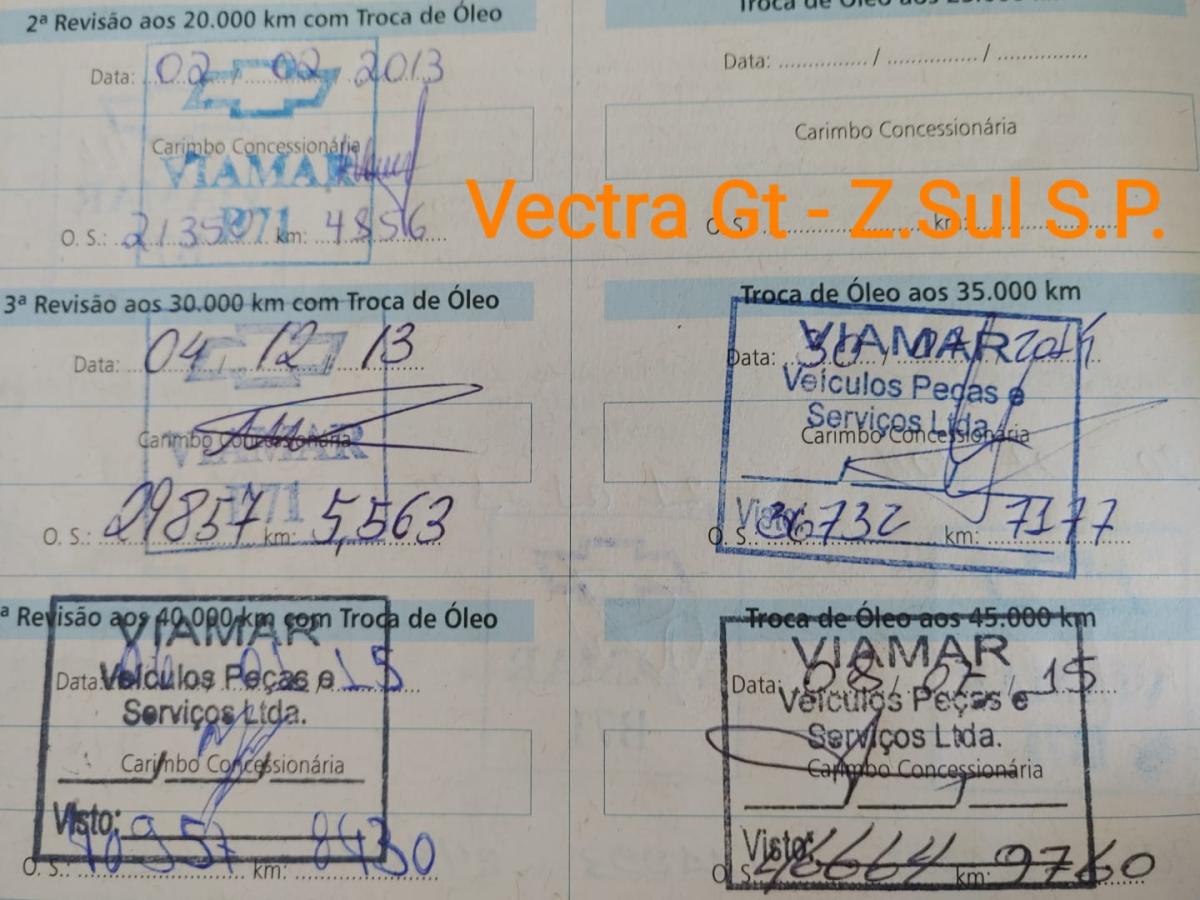 2ª Revisão aos 20.000 km com Troca de Óleo
Data: 02 / 02 / 2013
Carimbo Concessionária
VIAMAR
B71
O. S.: 21350 km: 4856
Data: / /
Carimbo Concessionária
O. S.: km:
Vectra Gt - Z.Sul S.P.
3ª Revisão aos 30.000 km com Troca de Óleo
Data: 04 / 12 / 13
Carimbo Concessionária
VIAMAR
B71
O. S.: 29857 km: 5,563
Troca de Óleo aos 35.000 km
VIAMAR
Data: 30 / 2014
Veículos Peças e
Serviços Ltda.
Carimbo Concessionária
Visto:
O. S.: 36732 km: 7177
ª Revisão aos 40.000 km com Troca de Óleo
VIAMAR
Data: 15
Veículos Peças e
Serviços Ltda.
Carimbo Concessionária
Visto:
O. S.: 40957 km: 8430
Troca de Óleo aos 45.000 km
VIAMAR
Data: 08 / 07 / 15
Veículos Peças e
Serviços Ltda.
Carimbo Concessionária
Visto:
O. S. 46664 km: 9760